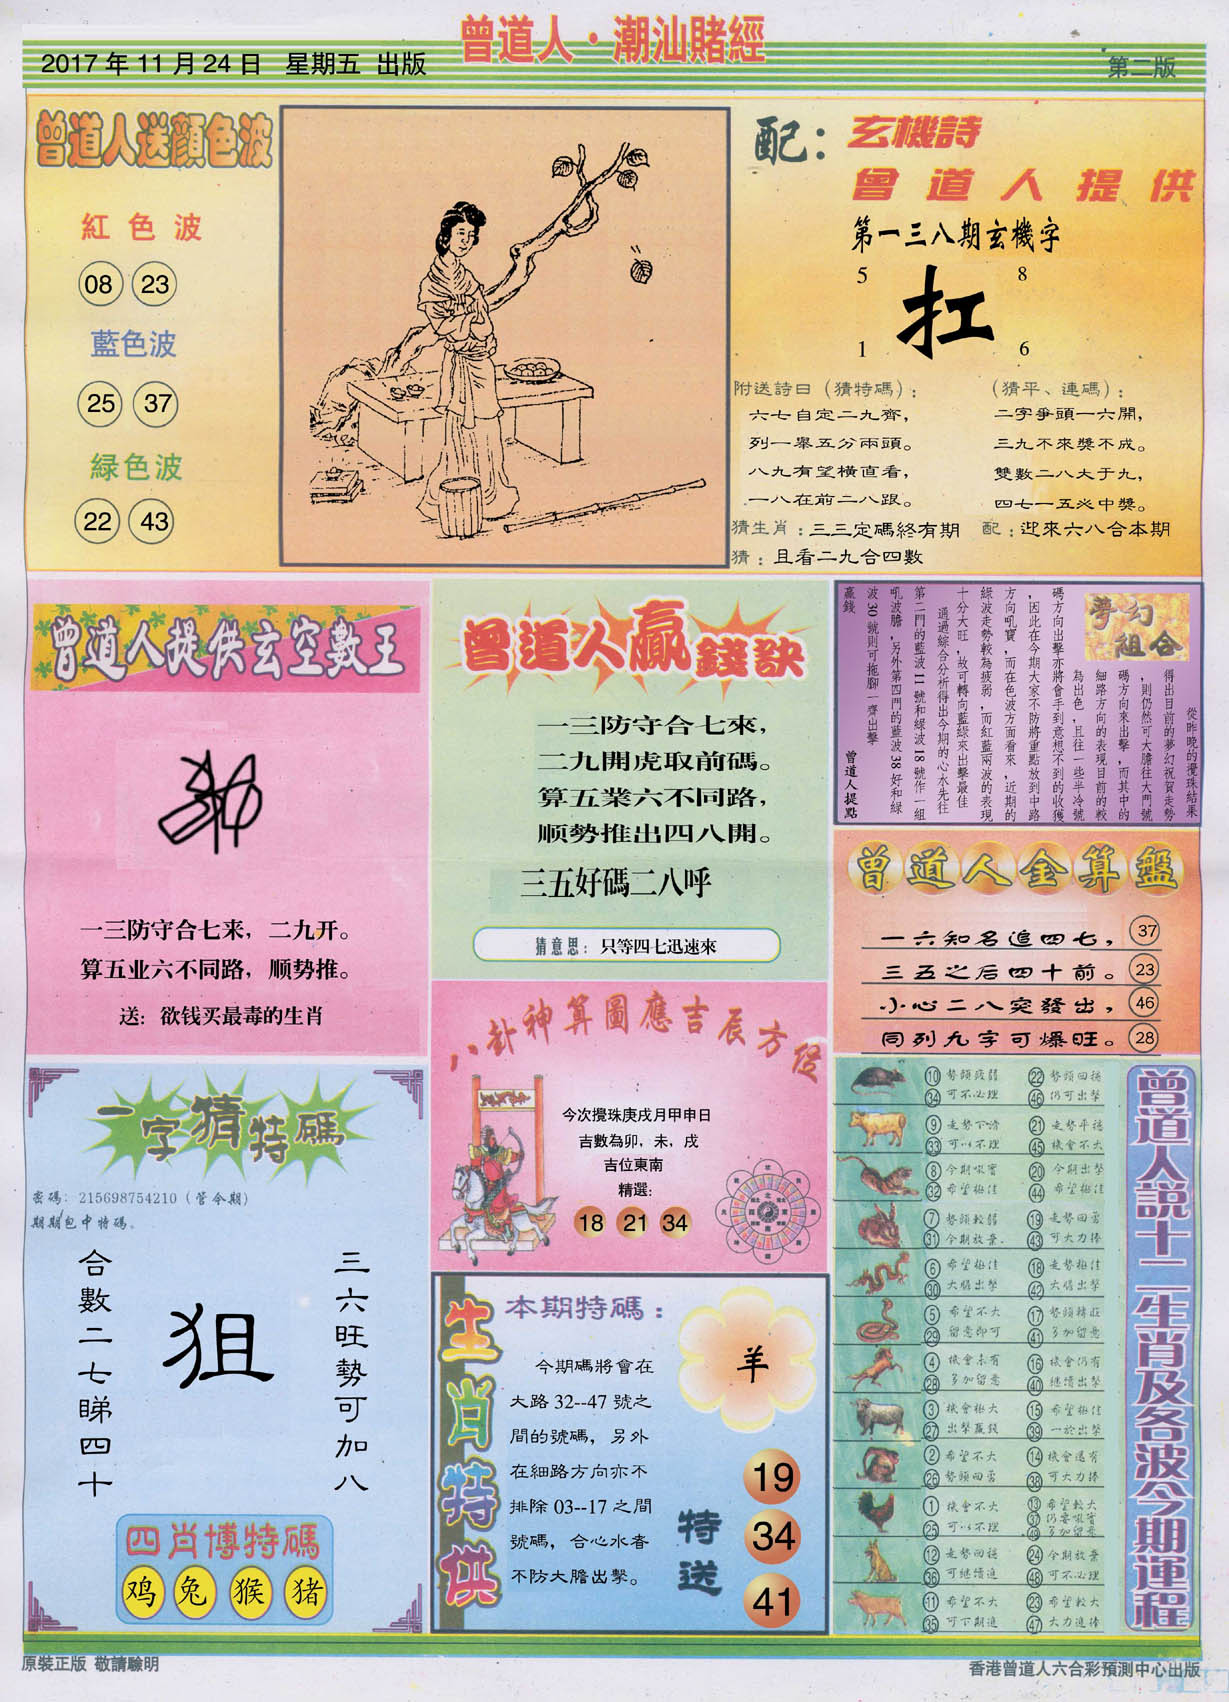 曾道人·潮汕賭經
2017年11月24日 星期五 出版
第二版
曾道人送顏色波
紅色波
08 23
藍色波
25 37
緑色波
22 43
配:玄機詩
曾道人提供
第一三八期玄機字
5 8
扛
1 6
附送詩曰(猜特碼):
六七自定二九齊,
列一舉五分兩頭。
八九有望橫直看,
一八在前二八跟。
(猜平、連碼):
二字爭頭一六開,
三九不來獎不成。
雙數二八大于九,
四七一五必中獎。
猜生肖:三三定碼終有期 配:迎來六八合本期
猜:且看二九合四數
曾道人提供玄空數王
一三防守合七来,二九开。
算五业六不同路,顺势推。
送:欲钱买最毒的生肖
曾道人贏錢訣
一三防守合七來,
二九開虎取前碼。
算五業六不同路,
顺勢推出四八開。
三五好碼二八呼
猜意思:只等四七迅速來
夢幻組合
從昨晚的攪珠結果
得出目前的夢幻祝賀走勢
,則仍然可大膽往大門號
碼方向來出擊,而其中的
細路方向的表現目前的較
為出色,且往一些半冷號
碼方向出擊亦將會手到意想不到的收獲
,因此在今期大家不防將重點放到中路
方向吼寶,而在色波方面看來,近期的
綠波走勢較為疲弱,而紅藍兩波的表現
十分大旺,故可轉向藍綠來出擊最佳
通過綜合分析得出今期的心水先往
第二門的藍波11號和綠波18號作一組
吼波膽,另外第四門的藍波38好和綠
波30號則可拖腳一齊出擊
贏錢
曾道人提點
曾道人金算盤
一六知名追四七, 37
三五之后四十前。 23
小心二八突發出, 46
同列九字可爆旺。 28
八卦神算圖應吉辰方位
今次攪珠庚戌月甲申日
吉數為卯,未,戌
吉位東南
精選:
18 21 34
一字猜特碼
密碼:215698754210(管令期)
期期包中特碼。
三六旺勢可加八
狙
合數二七睇四十
四肖博特碼
鸡 兔 猴 猪
生肖特供
本期特碼:
今期碼將會在
大路32--47號之
間的號碼,另外
在細路方向亦不
排除03--17之間
號碼,合心水者
不防大膽出擊。
羊
特送
19
34
41
曾道人説十二生肖及各波今期運程
10 勢頭疲弱 22 勢頭回穩
34 可不必理 46 仍可出擊
9 走勢下滑 21 走勢平穩
33 可以不理 45 機會不大
8 今期吼寶 20 今期出擊
32 希望極佳 44 希望極佳
7 勢頭較弱 19 走勢回勇
31 今期放棄 43 可大力捧
6 希望極佳 18 走勢極佳
30 大膽出擊 42 大膽出擊
5 希望不大 17 勢頭轉旺
29 留意即可 41 多加留意
4 機會未有 16 機會仍有
28 多加留意 40 繼續出擊
3 機會極大 15 希望極佳
27 出擊贏錢 39 一於出擊
2 希望不大 14 機會還有
26 勢頭回勇 38 可大力捧
1 機會不大 13 希望較大
25 可以不理 37 仍要吼寶
49 多加留意
12 走勢回穩 24 今期放棄
36 可繼續追 48 可不必理
11 希望不大 23 希望較大
35 可下期進 47 大力進捧
原裝正版 敬請驗明
香港曾道人六合彩預測中心出版